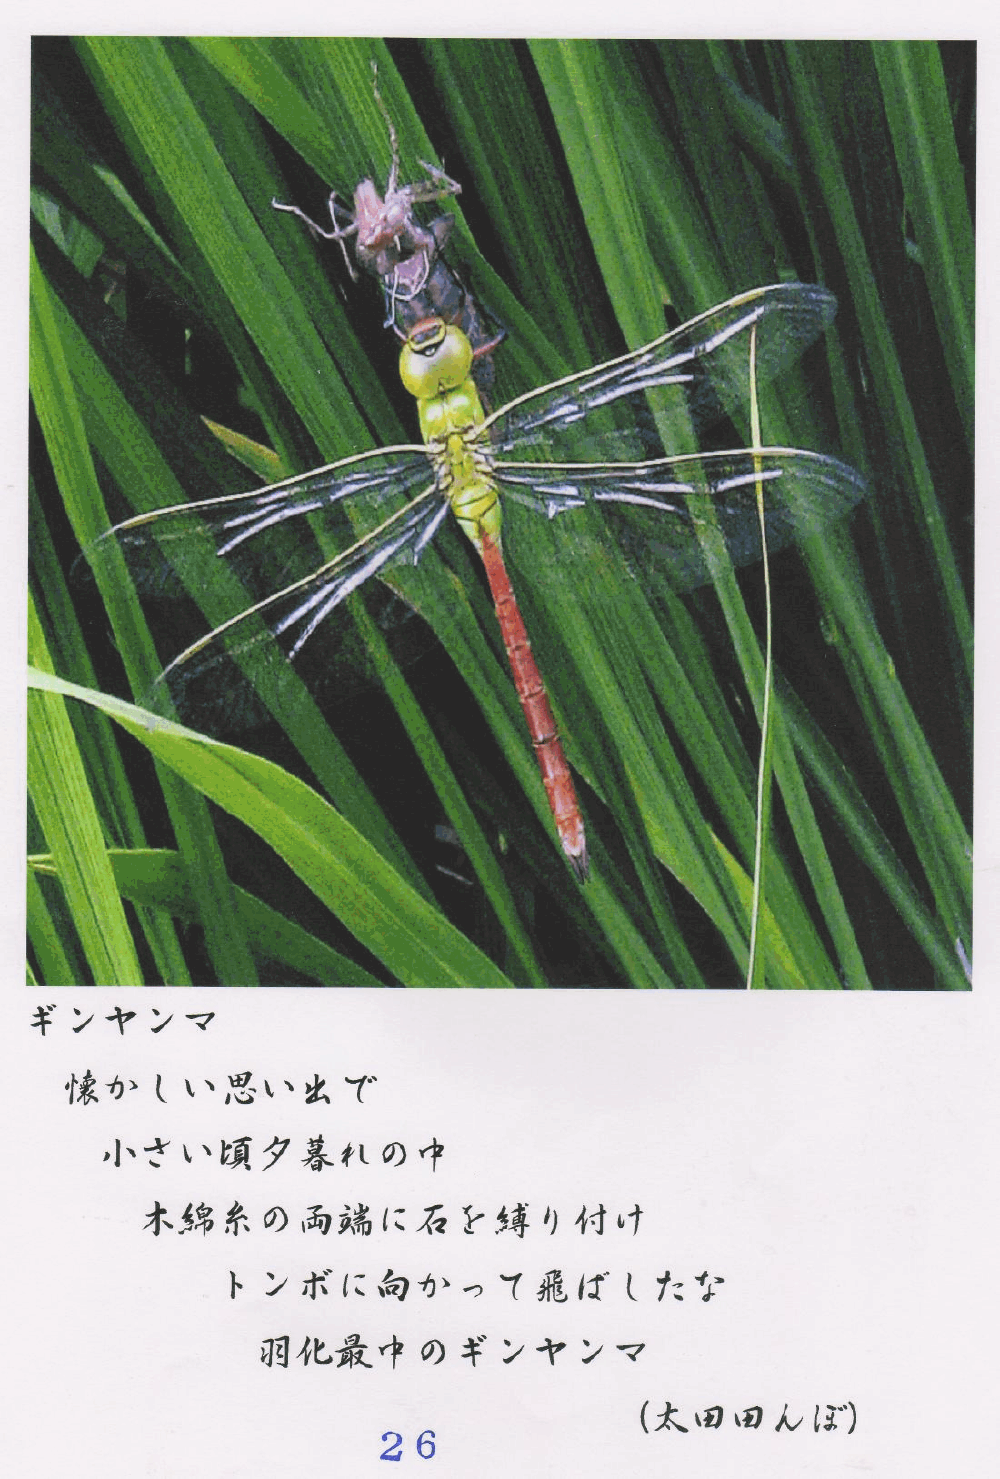 ギンヤンマ
懐かしい思い出で
小さい頃夕暮れの中
木綿糸の両端に石を縛り付け
トンボに向かって飛ばしたな
羽化最中のギンヤンマ
(太田田んぼ)
26